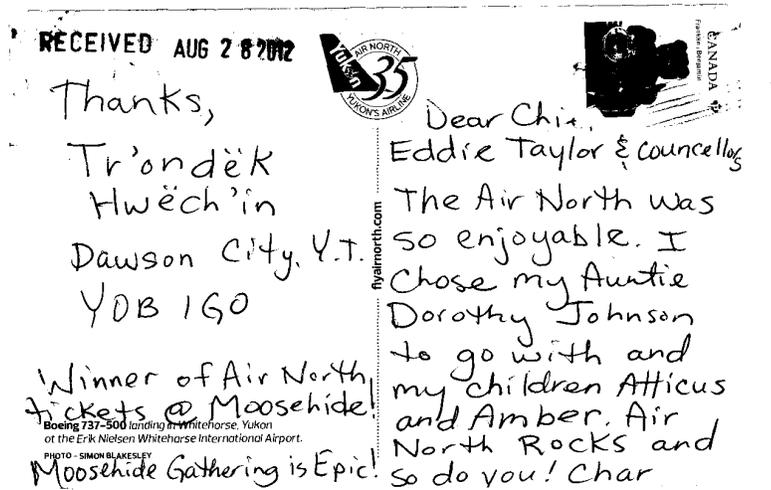 RECEIVED AUG 28 2012
Yukon
AIR NORTH
35
YUKON'S AIRLINE
CANADA
Franklin & Benjamin
Thanks,
Tr'ondëk
Hwëch'in
Dawson City, Y.T.
YOB 1G0
Winner of Air North
tickets @ Moosehide!
Boeing 737-500 landing in Whitehorse, Yukon
at the Erik Nielsen Whitehorse International Airport.
PHOTO - SIMON BLAKESLEY
Moosehide Gathering is Epic!
flyairnorth.com
Dear
Eddie Taylor & Councellors
The Air North was
so enjoyable. I
chose my Auntie
Dorothy Johnson
to go with and
my children Atticus
and Amber. Air
North Rocks and
so do you! Char